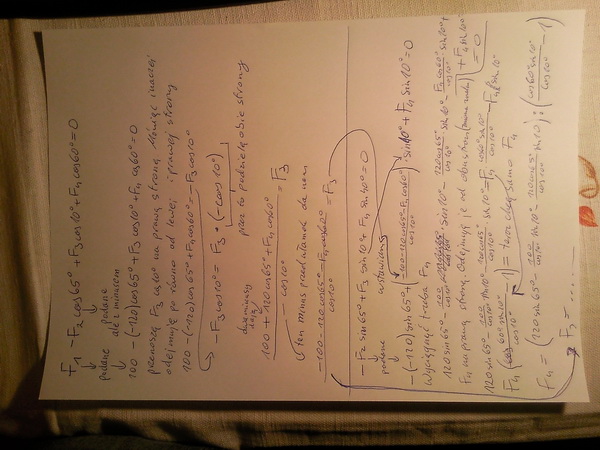 F1 - F2 cos65° + F3 cos10° + F4 cos60° = 0
podane podane
ale z minusem
100 - (-120) cos65° + F3 cos10° + F4 cos60° = 0
przenoszę F3 cos10° na prawą stronę mówiąc inaczej
odejmuję po równo od lewej i prawej strony
100 - (-120) cos65° + F4 cos60° = -F3 cos10°
-F3 cos10° = F3 * (-cos10°)
przez to podzielę obie strony
dwa minusy
dają +
100 + 120 cos65° + F4 cos60° / -cos10° = F3
ten minus przed ułamek da nam
-100 - 120 cos65° - F4 cos60° / cos10° = F3
-F2 sin65° + F3 sin10° + F4 sin40° = 0
podane wstawiamy
-(-120) sin65° + (-100 - 120 cos65° - F4 cos60° / cos10°) · sin10° + F4 sin10° = 0
Wyciągnąć trzeba F4
120 sin65° - 100 / cos10° sin10° - 120 cos65° / cos10° sin10° - F4 cos60° / cos10° sin10° + F4 sin10° = 0
F4 na prawą stronę. Odejmuję je od obu stron
120 sin65° - 100 / cos10° sin10° - 120 cos65° / cos10° sin10° = F4 cos60° sin10° / cos10° - F4 sin10°
F4 (cos60° sin10° / cos10° - 1) = teraz chcę samo F4
F4 = (120 sin65° - 100 / cos10° sin10° - 120 cos65° / cos10° sin10°) : (cos60° sin10° / cos10° - 1)
F3 = ......